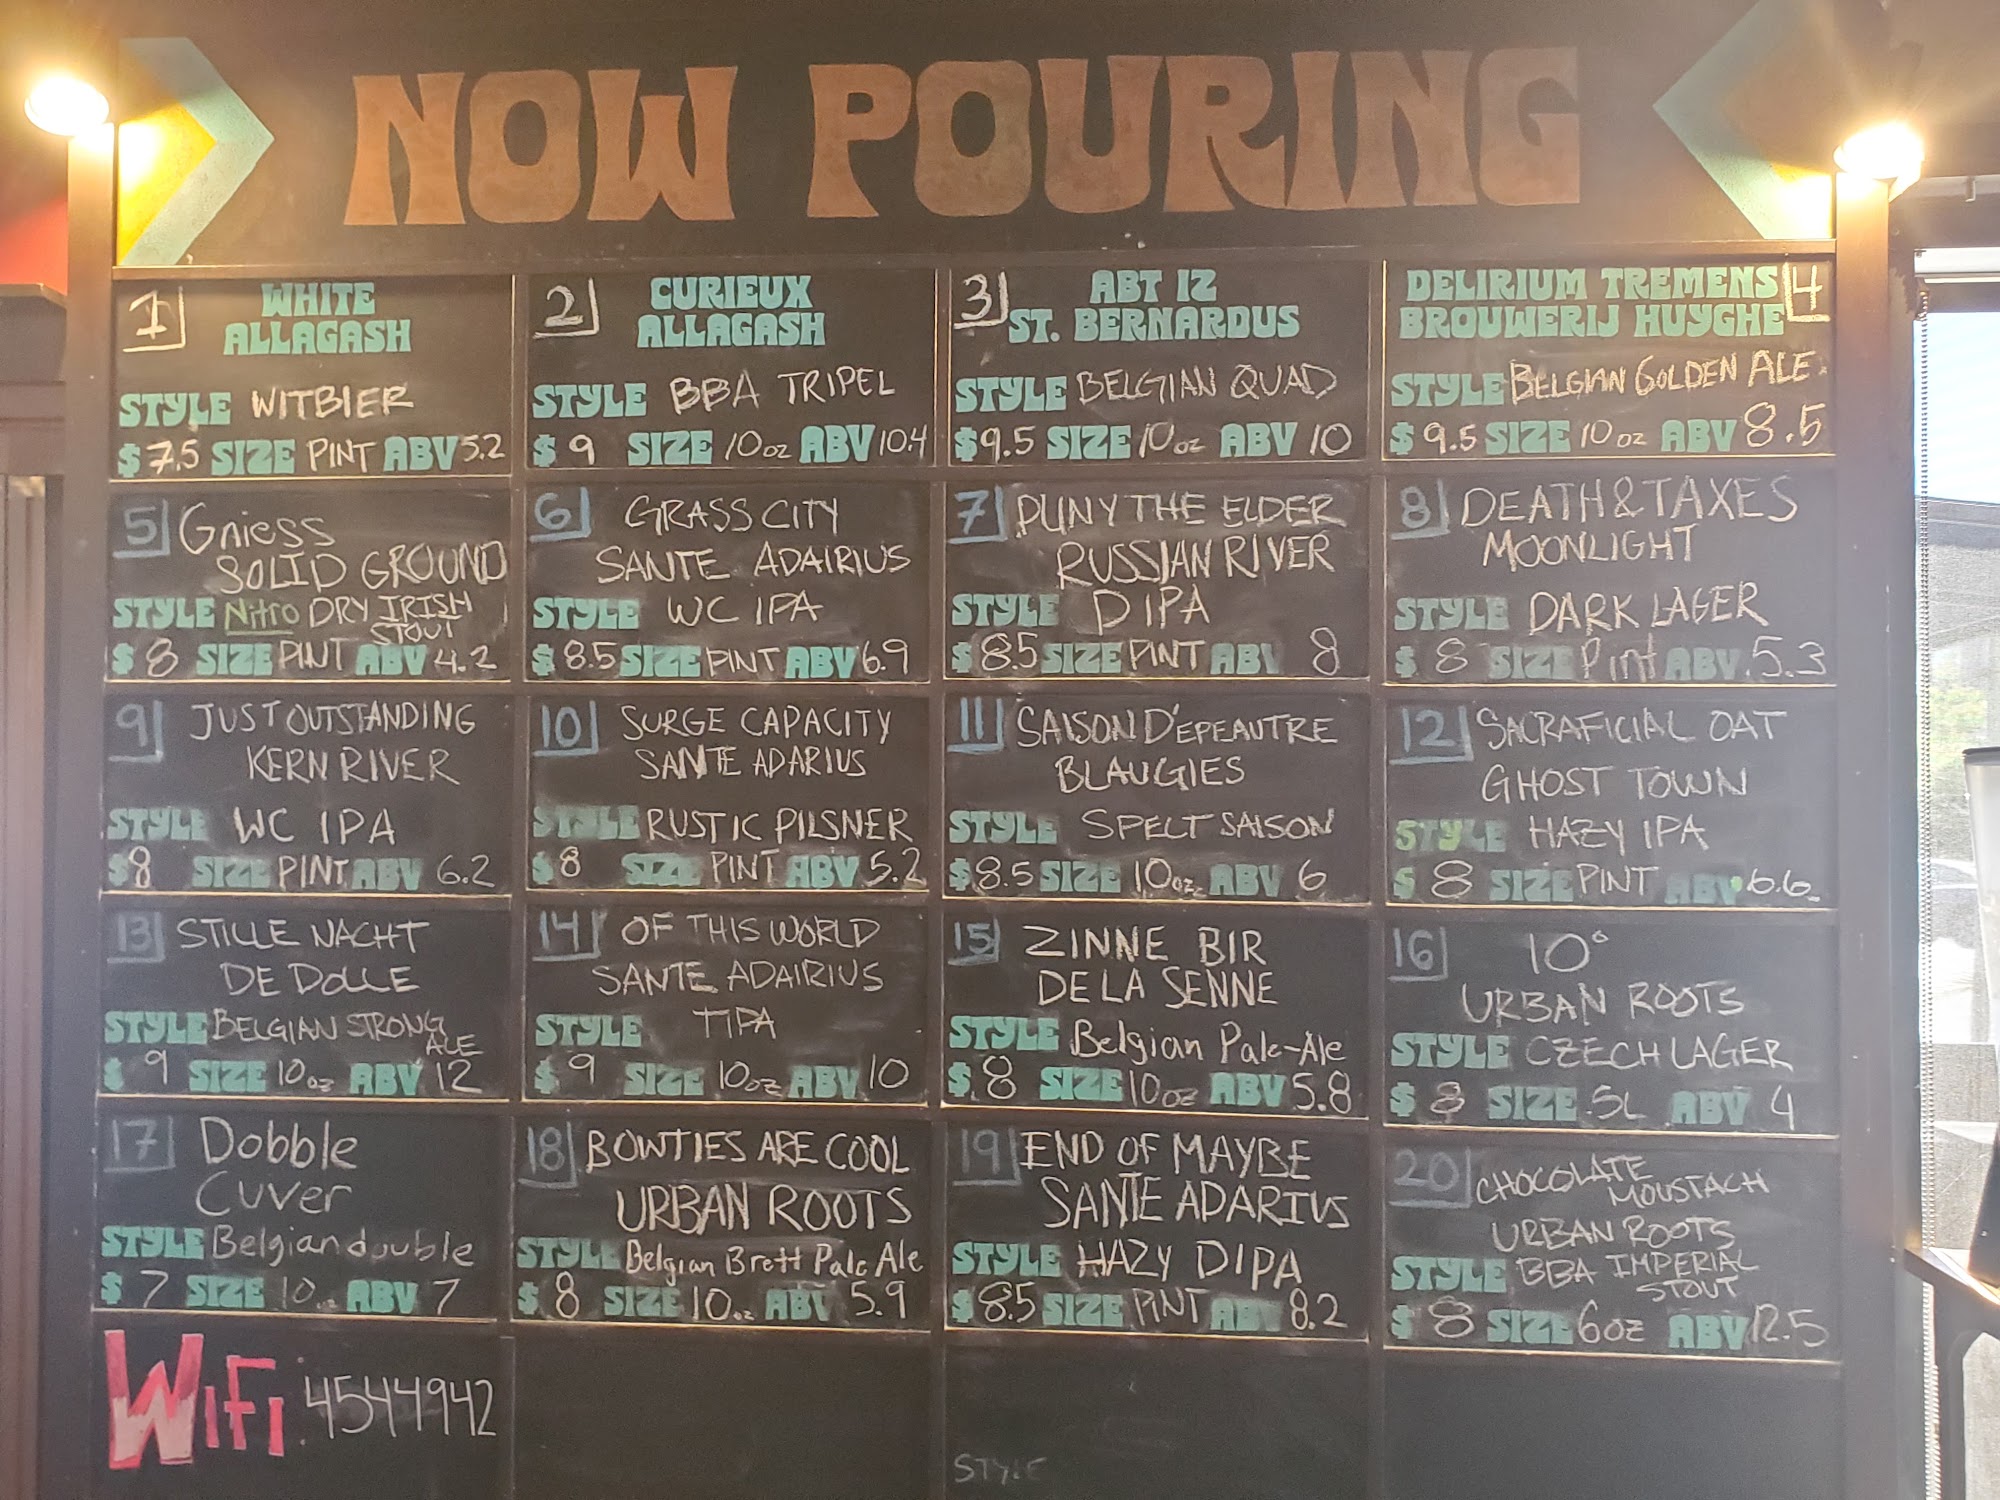 NOW POURING
1 WHITE
ALLAGASH
STYLE WITBIER
$ 7.5 SIZE PINT ABV 5.2
2 CURIEUX
ALLAGASH
STYLE BBA TRIPEL
$ 9 SIZE 10oz ABV 10.4
3 ABT 12
ST. BERNARDUS
STYLE BELGIAN QUAD
$9.5 SIZE 10oz ABV 10
DELIRIUM TREMENS 4
BROUWERIJ HUYGHE
STYLE BELGIAN GOLDEN ALE
$ 9.5 SIZE 10oz ABV 8.5
5 Gniess
SOLID GROUND
STYLE Nitro DRY IRISH
STOUT
$ 8 SIZE PINT ABV 4.2
6 GRASS CITY
SANTE ADAIRIUS
STYLE WC IPA
$ 8.5 SIZE PINT ABV 6.9
7 PLINY THE ELDER
RUSSIAN RIVER
STYLE DIPA
$8.5 SIZE PINT ABV 8
8 DEATH & TAXES
MOONLIGHT
STYLE DARK LAGER
$ 8 SIZE Pint ABV 5.3
9 JUST OUTSTANDING
KERN RIVER
STYLE WC IPA
$8 SIZE PINT ABV 6.2
10 SURGE CAPACITY
SANTE ADARIUS
STYLE RUSTIC PILSNER
$8 SIZE PINT ABV 5.2
11 SAISON D'EPEAUTRE
BLAUGIES
STYLE SPELT SAISON
$8.5 SIZE 10oz ABV 6
12 SACRAFICIAL OAT
GHOST TOWN
STYLE HAZY IPA
$ 8 SIZE PINT ABV 6.6
13 STILLE NACHT
DE DOLLE
STYLE BELGIAN STRONG
ALE
$ 9 SIZE 10oz ABV 12
14 OF THIS WORLD
SANTE ADAIRIUS
STYLE TIPA
$ 9 SIZE 10oz ABV 10
15 ZINNE BIR
DE LA SENNE
STYLE Belgian Pale-Ale
$ 8 SIZE 10oz ABV 5.8
16 10°
URBAN ROOTS
STYLE CZECH LAGER
$ 8 SIZE .5L ABV 4
17 Dobble
Cuver
STYLE Belgian double
$ 7 SIZE 10oz ABV 7
18 BOWTIES ARE COOL
URBAN ROOTS
STYLE Belgian Brett Pale Ale
$ 8 SIZE 10oz ABV 5.9
19 END OF MAYBE
SANTE ADARIUS
STYLE HAZY DIPA
$8.5 SIZE PINT ABV 8.2
20 CHOCOLATE
MOUSTACH
URBAN ROOTS
STYLE BBA IMPERIAL
STOUT
$ 8 SIZE 6oz ABV 12.5
WiFi: 4544942
STYLE